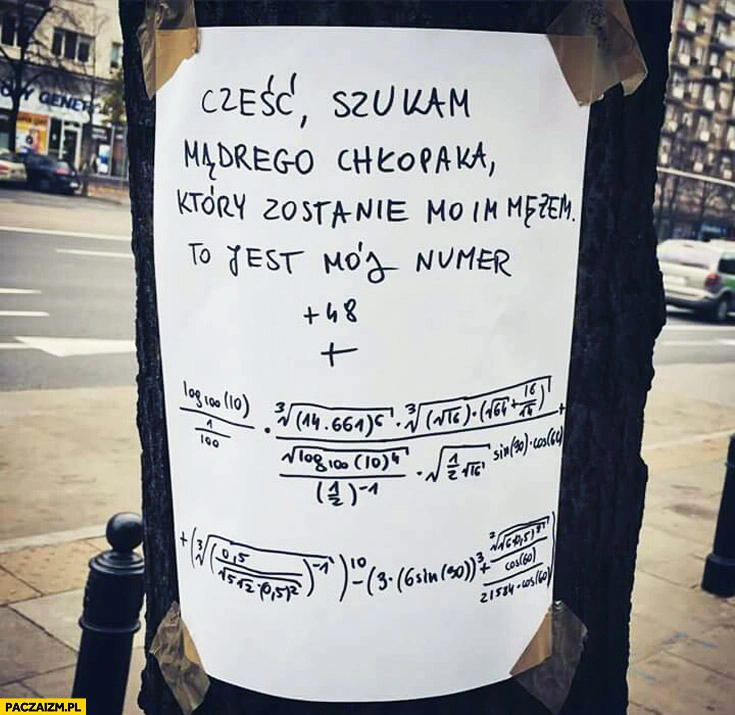 GENER
CZEŚĆ, SZUKAM
MĄDREGO CHŁOPAKA,
KTÓRY ZOSTANIE MOIM MĘŻEM.
TO JEST MÓJ NUMER
+48
+
log₁₀₀(10) / (1/100) · (∛(14.661)⁶ · ∛((√16)·(√64 + 16/14))) / ((√log₁₀₀(10)⁴ / (1/2)⁻¹) · √(1/2 √16)) sin(90)·cos(60) +
+ (∛(0,5 / √512·(0,5)²)⁻¹)¹⁰ − (3·(6sin(90))³ + cos(60) / 21584·cos(60))
PACZAIZM.PL